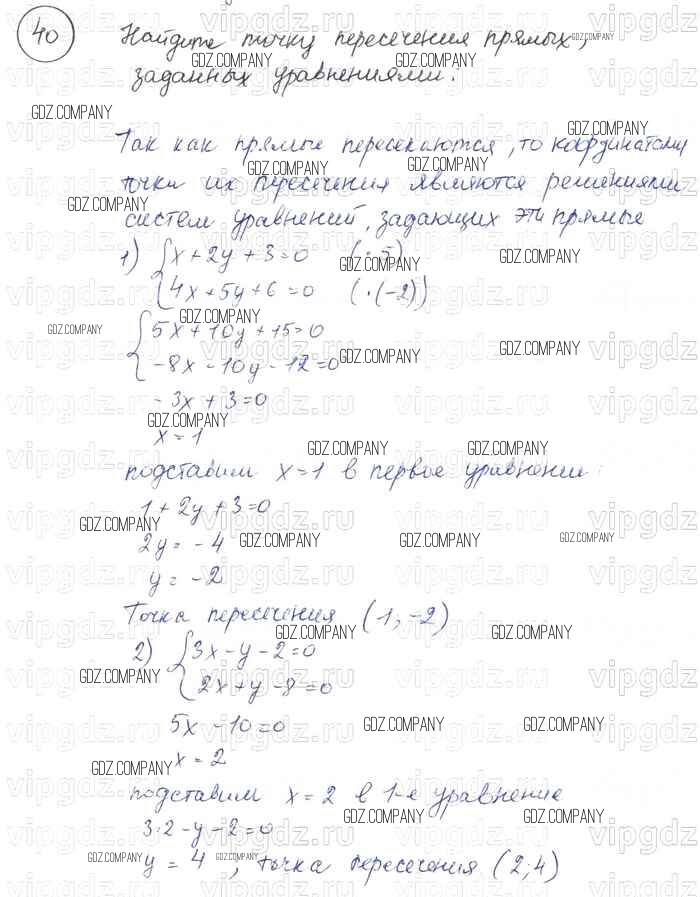 40
Найдите точку пересечения прямых,
заданных уравнениями.
Так как прямые пересекаются, то координатами
точки их пересечения являются решениями
систем уравнений, задающих эти прямые
1) { x + 2y + 3 = 0 (· 5)
{ 4x + 5y + 6 = 0 (·(-2))
{ 5x + 10y + 15 = 0
{ -8x - 10y - 12 = 0
-3x + 3 = 0
x = 1
подставим x = 1 в первое уравнение
1 + 2y + 3 = 0
2y = -4
y = -2
Точка пересечения (1; -2)
2) { 3x - y - 2 = 0
{ 2x + y - 8 = 0
5x - 10 = 0
x = 2
подставим x = 2 в 1-е уравнение
3·2 - y - 2 = 0
y = 4, точка пересечения (2; 4)
GDZ.COMPANY
vipgdz.ru